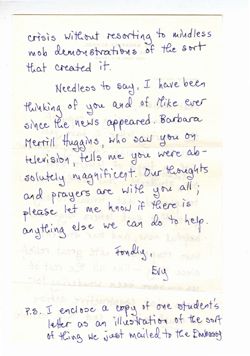 crisis without resorting to mindless
mob demonstrations of the sort
that created it.
Needless to say, I have been
thinking of you and of Mike ever
since the news appeared. Barbara
Merrill Huggins, who saw you on
television, tells me you were ab-
solutely magnificent. Our thoughts
and prayers are with you all;
please let me know if there is
anything else we can do to help.
Fondly,
Evy
P.S. I enclose a copy of one student's
letter as an illustration of the sort
of thing we just mailed to the Embassy